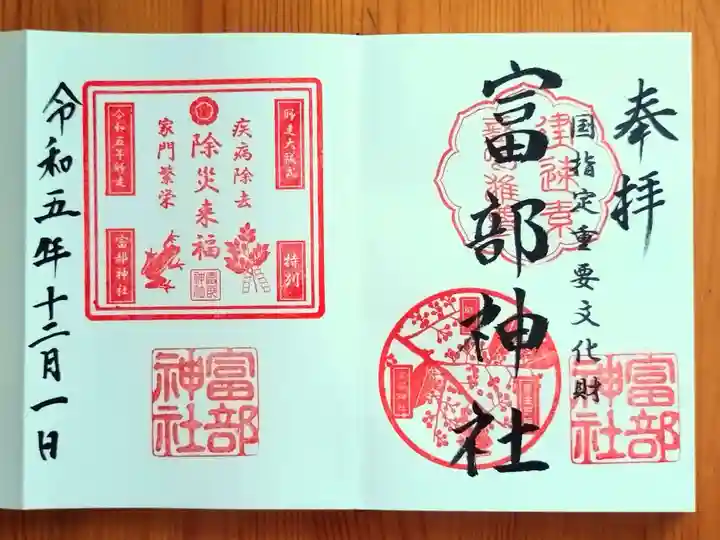 奉拝
国指定重要文化財
富部神社
富部神社
疾病除去
除災来福
家門繁栄
特別
令和五年師走
富部神社
富部神社
令和五年十二月一日